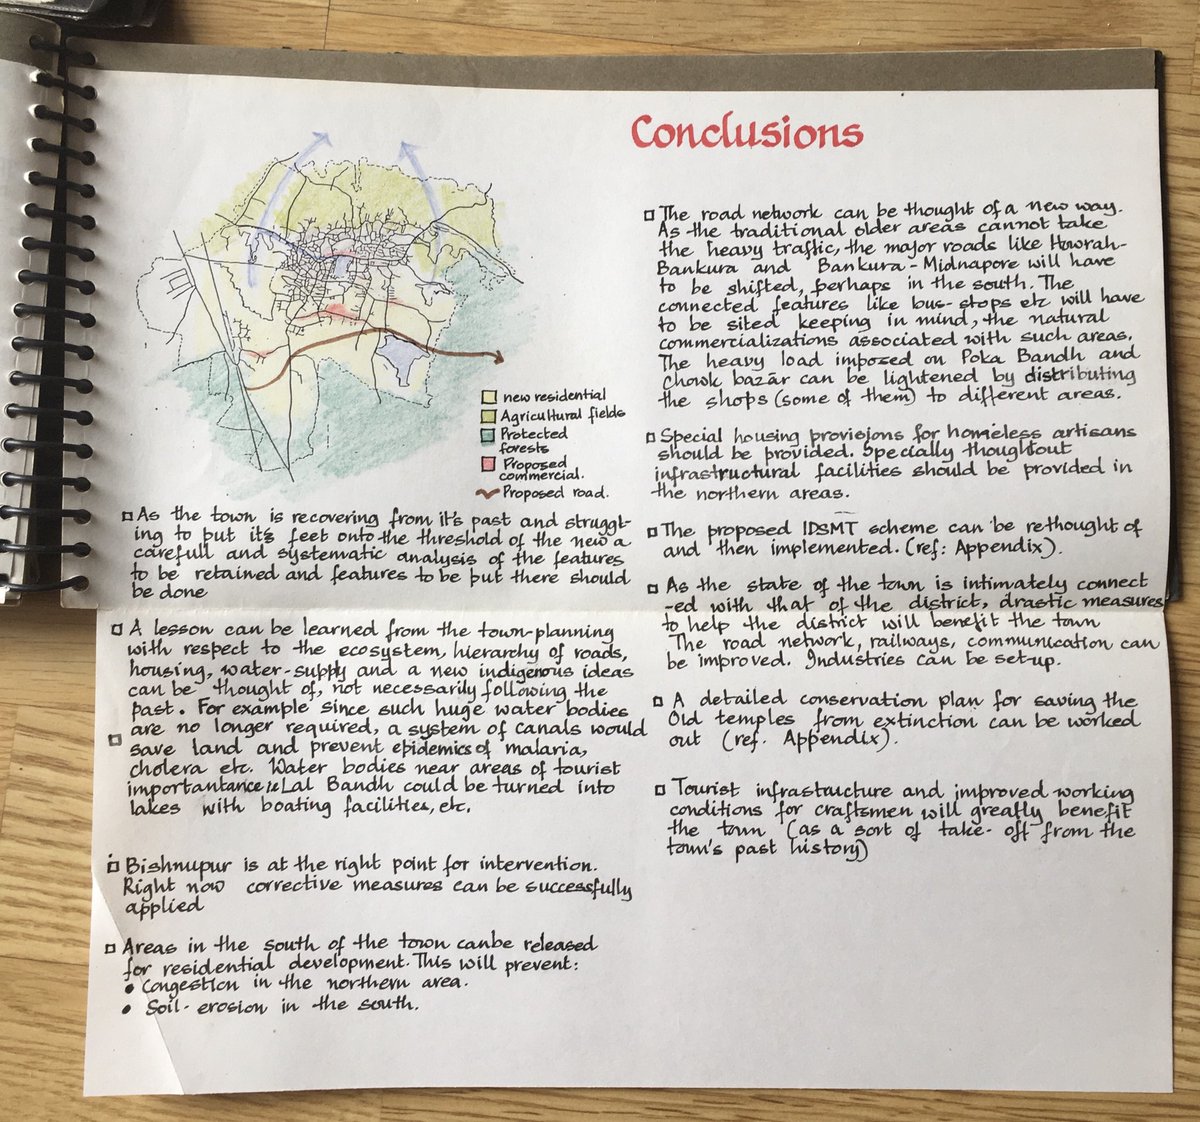 Conclusions
new residential
Agricultural fields
Protected
forests
Proposed
commercial.
Proposed road.
As the town is recovering from it's past and struggl-
ing to put it's feet onto the threshold of the new a
carefull and systematic analysis of the features
to be retained and features to be put there should
be done
A lesson can be learned from the town-planning
with respect to the ecosystem, hierarchy of roads,
housing, water-supply and a new indigenous ideas
can be thought of, not necessarily following the
past. For example since such huge water bodies
are no longer required, a system of canals would
save land and prevent epidemics of malaria,
cholera etc. Water bodies near areas of tourist
importantance ie Lal Bandh could be turned into
lakes with boating facilities, etc.
Bishnupur is at the right point for intervention.
Right now corrective measures can be successfully
applied
Areas in the south of the town canbe released
for residential development. This will prevent:
• Congestion in the northern area.
• Soil-erosion in the south.
The road network can be thought of a new way.
As the traditional older areas cannot take
the heavy traffic, the major roads like Howrah-
Bankura and Bankura-Midnapore will have
to be shifted, perhaps in the south. The
connected features like bus-stops etc will have
to be sited keeping in mind, the natural
commercializations associated with such areas.
The heavy load imposed on Poka Bandh and
Chowk bazār can be lightened by distributing
the shops (some of them) to different areas.
Special housing provisions for homeless artisans
should be provided. Specially thoughtout
infrastructural facilities should be provided in
the northern areas.
The proposed IDSMT scheme can be rethought of
and then implemented. (ref: Appendix).
As the state of the town is intimately connect
-ed with that of the district, drastic measures
to help the district will benefit the town
The road network, railways, communication can
be improved. Industries can be set-up.
A detailed conservation plan for saving the
Old temples from extinction can be worked
out (ref. Appendix).
Tourist infrastructure and improved working
conditions for craftsmen will greatly benefit
the town (as a sort of take-off from the
town's past history)